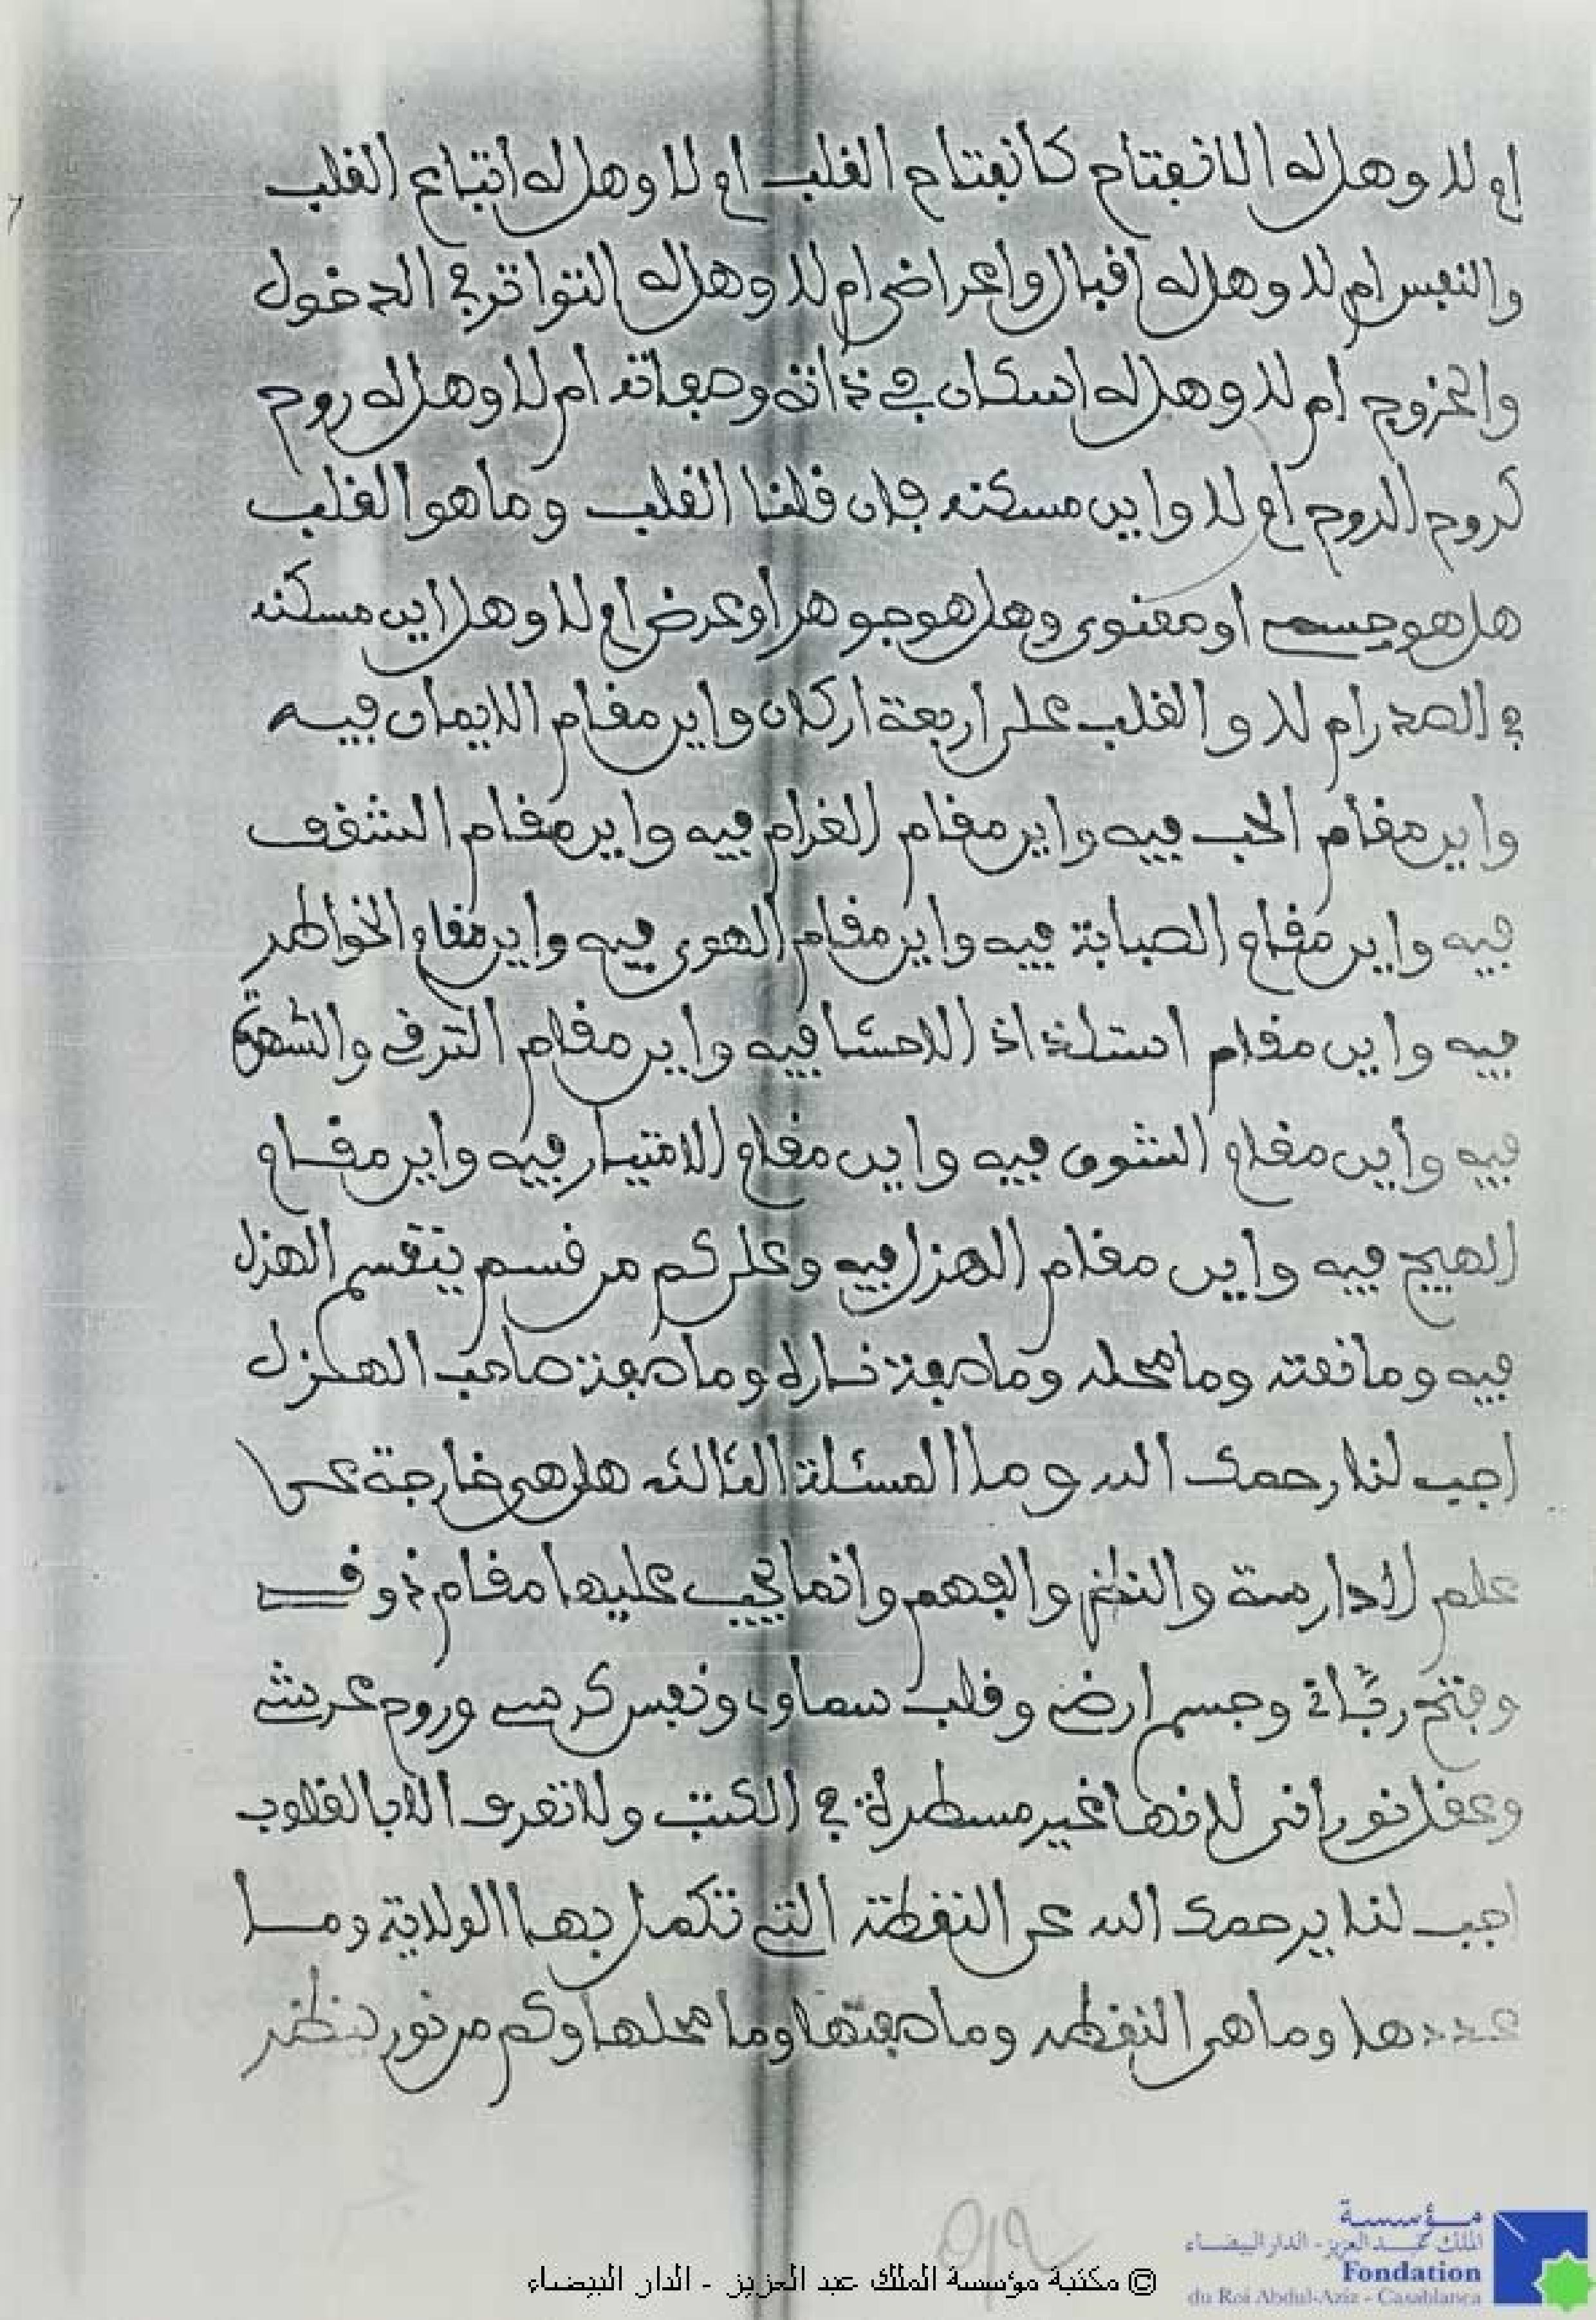 ام لا وهل له الانفتاح كانفتاح القلب ام لا وهل له اتباع القلب
والنفس ام لا وهل له اقبال واعراض ام لا وهل له التواتر في الدخول
والخروج ام لا وهل له اسكان في ذاته وصفاته ام لا وهل له روح
كروح الروح ام لا واين مسكنه فان قلنا القلب وما هو القلب
هل هو جسم او معنوى وهل هو جوهر او عرض ام لا وهل اين مسكنه
في الصدر ام لا والقلب على اربعة اركان واين مقام الايمان فيه
واين مقام الحب فيه واين مقام الغرام فيه واين مقام الشغف
فيه واين مقام الصبابة فيه واين مقام الهوى فيه واين مقام الخواطر
فيه واين مقام استلذاذ الاحشا فيه واين مقام الترقي والشهوة
فيه وأين مقام الشوق فيه واين مقام الاختيار فيه واين مقام
الهيج فيه واين مقام الهزل فيه وعلى كم من قسم ينقسم الهزل
فيه وما نعته وما محله وما صفة ناره وما صفة صاحب الهزل
اجب لنا رحمك الله وما المسئلة الثالثه هل هي خارجة عن
علم الادارسة والنظر والفهم وانما يجيب عليها مقام ذوقي
وفتح رباني وجسم ارضي وقلب سماوي ونفس كرسي وروح عرشي
وعقل نوراني لانها غير مسطرة في الكتب ولا تعرف الا بالقلوب
اجب لنا يرحمك الله عن النقطة التي تكمل بها الولاية وما
عددها وما هي النقطه وما صفتها وما محلها وكم من نور ينظر
© مكتبة مؤسسة الملك عبد العزيز - الدار البيضاء
مؤسسة
الملك عبد العزيز - الدار البيضاء
Fondation
du Roi Abdul-Aziz - Casablanca